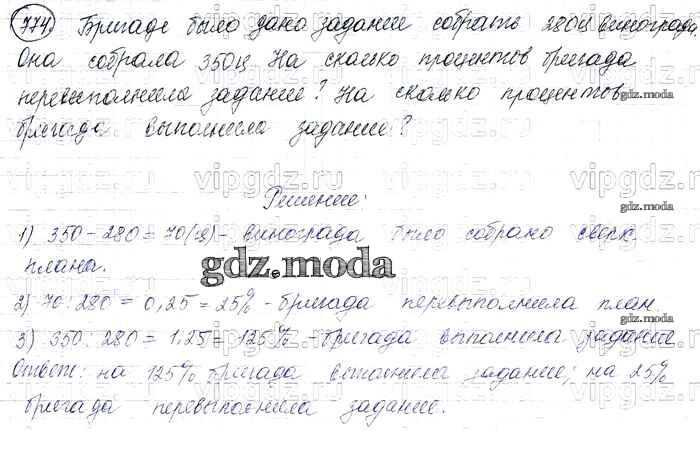 774. Бригаде было дано задание собрать 280ц винограда.
Она собрала 350ц. На сколько процентов бригада
перевыполнила задание? На сколько процентов
gdz.moda
бригада выполнила задание?
vipgdz.ru vipgdz.ru vipgdz.ru
Решение:
gdz.moda
1) 350-280=70(ц)- винограда было собрано сверх
плана.
gdz.moda
2) 70:280=0,25=25% -бригада перевыполнила план
gdz.moda
3) 350:280=1,25=125% -бригада выполнила задание
Ответ: на 125% бригада выполнила задание; на 25%
бригада перевыполнила задание.